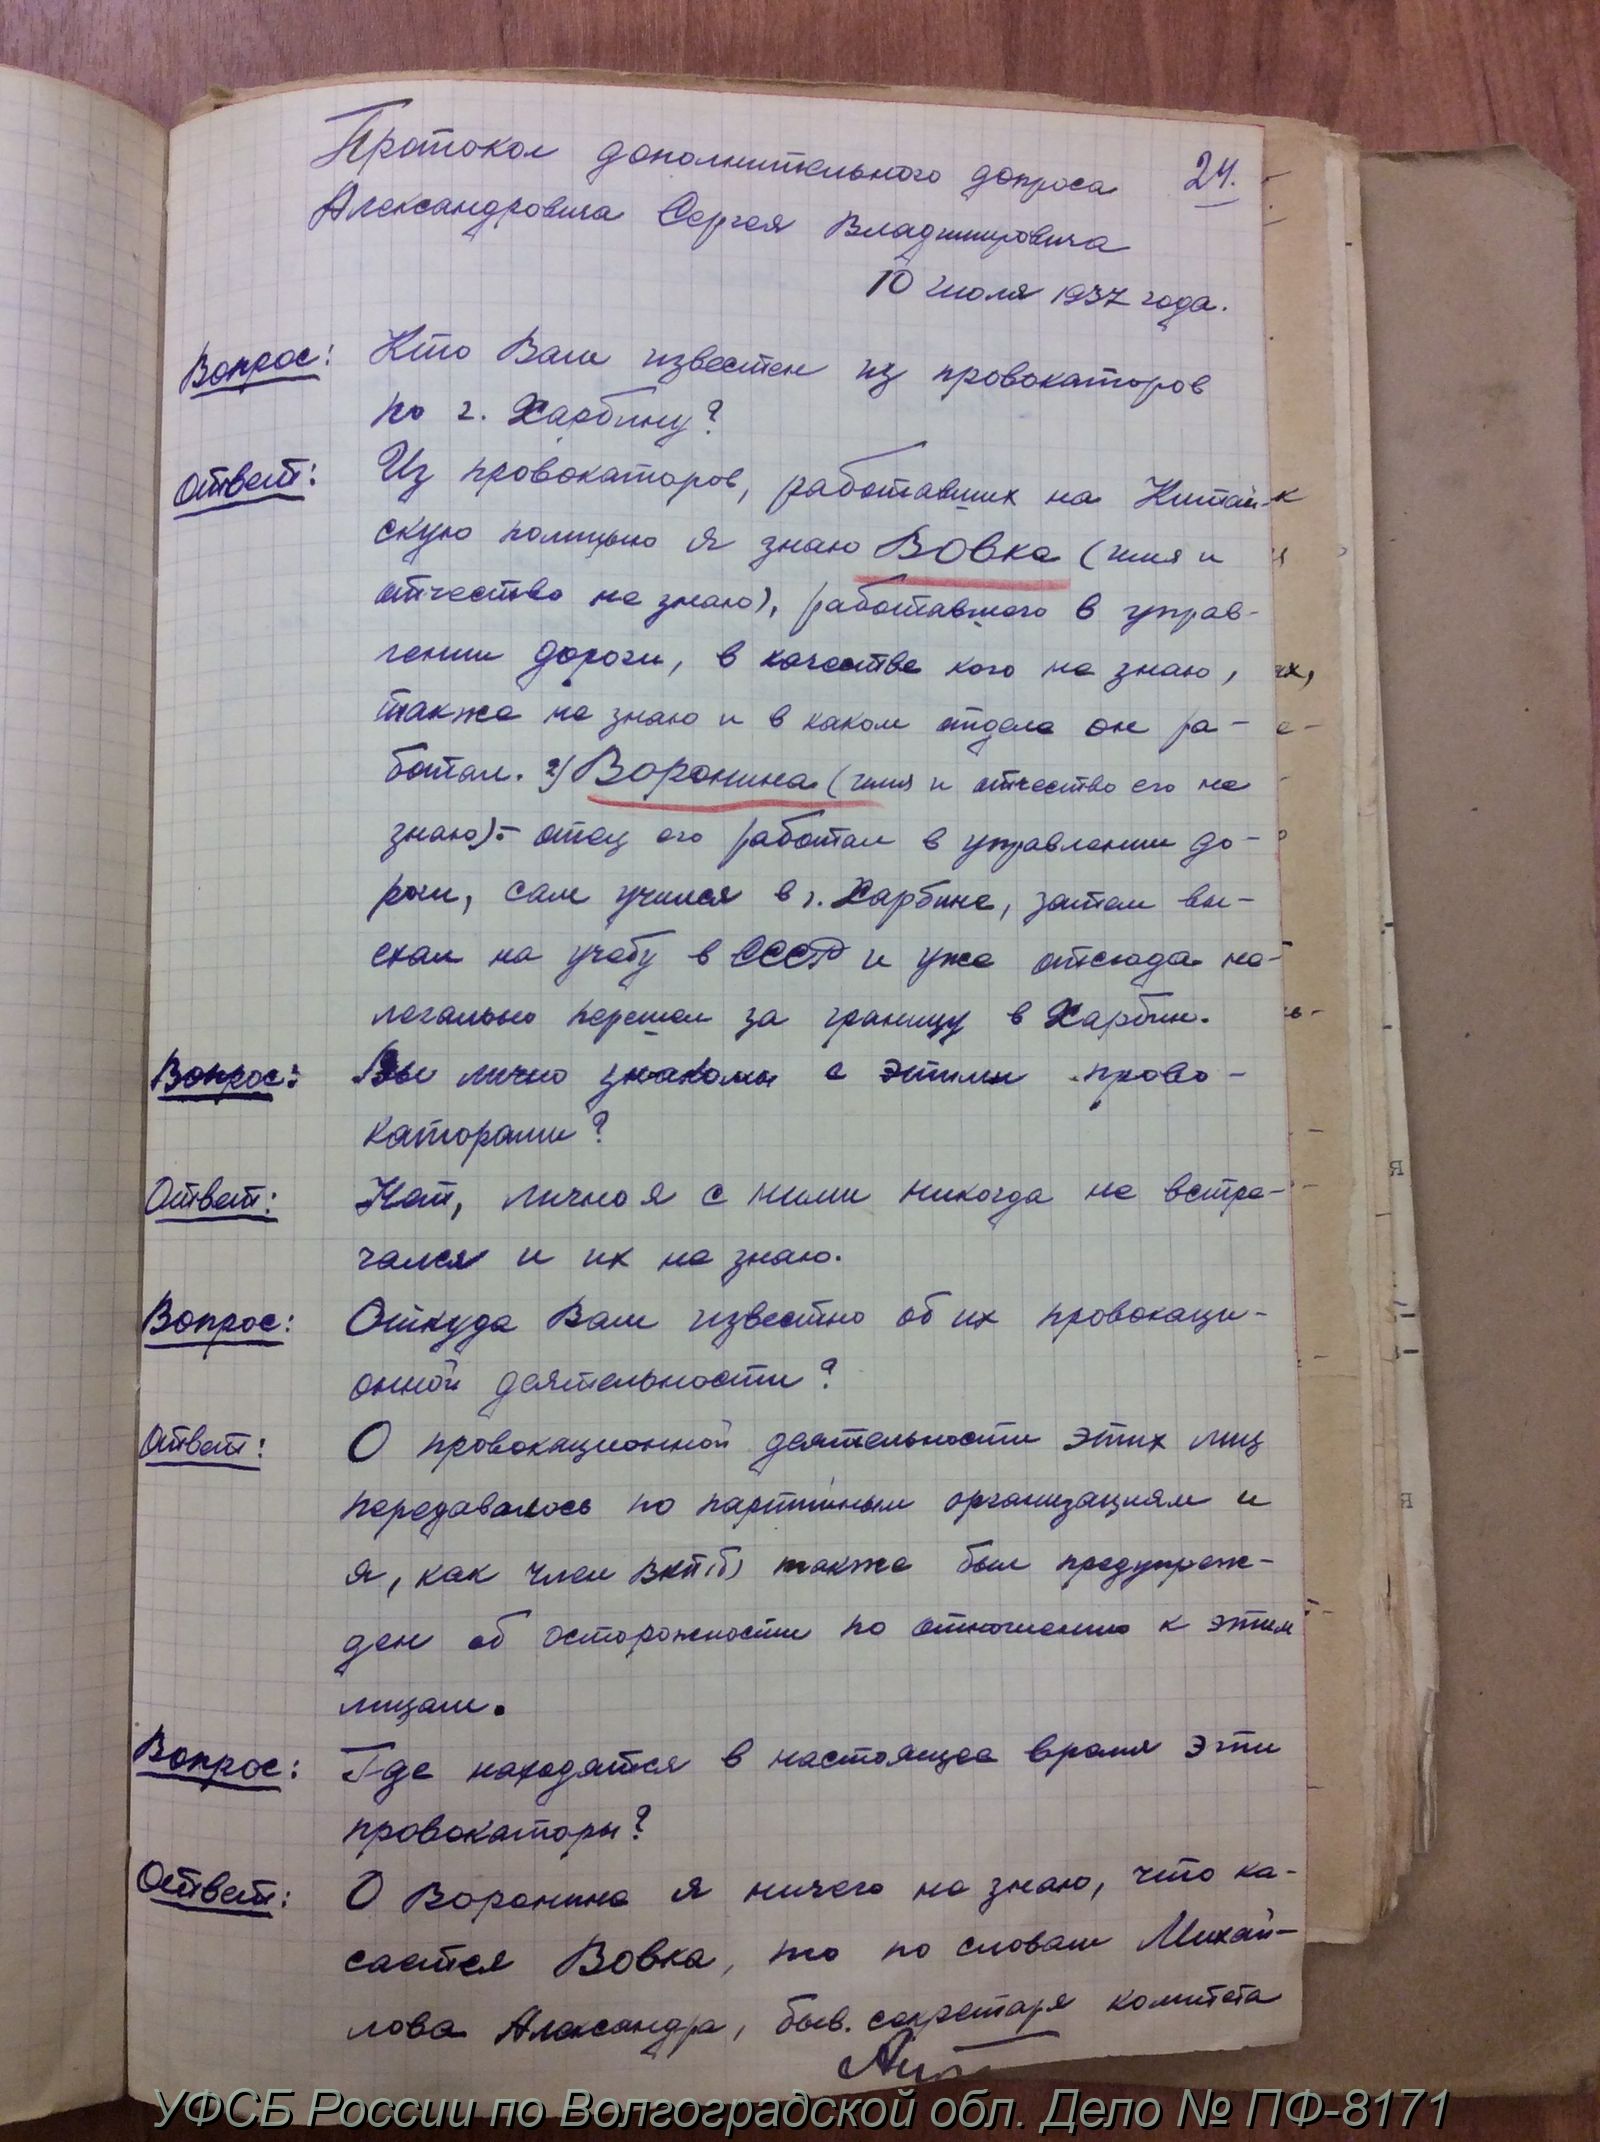 Протокол дополнительного допроса 24.
Александровича Сергея Владимировича
10 июля 1937 года.
Вопрос: Кто Вам известен из провокаторов
по г. Харбину?
Ответ: Из провокаторов, работавших на Китай-
скую полицию я знаю Вовка (имя и
отчество не знаю), работавшего в управ-
лении дороги, в качестве кого не знаю,
также не знаю и в каком отделе он ра-
ботал. 2) Воронина (имя и отчество его не
знаю):- отец его работал в управлении до-
роги, сам учился в г. Харбине, затем вы-
ехал на учебу в СССР и уже отсюда не-
легально перешел за границу в Харбин.
Вопрос: Вы лично знакомы с этими прово-
каторами?
Ответ: Нет, лично я с ними никогда не встре-
чался и их не знаю.
Вопрос: Откуда Вам известно об их провокаци-
онной деятельности?
Ответ: О провокационной деятельности этих лиц
передавалось по партийным организациям и
я, как член ВКП(б) также был предупреж-
ден об осторожности по отношению к этим
лицам.
Вопрос: Где находятся в настоящее время эти
провокаторы?
Ответ: О Воронине я ничего не знаю, что ка-
сается Вовка, то по словам Михай-
лова Александра, быв. секретаря комитета
УФСБ России по Волгоградской обл. Дело № ПФ-8171